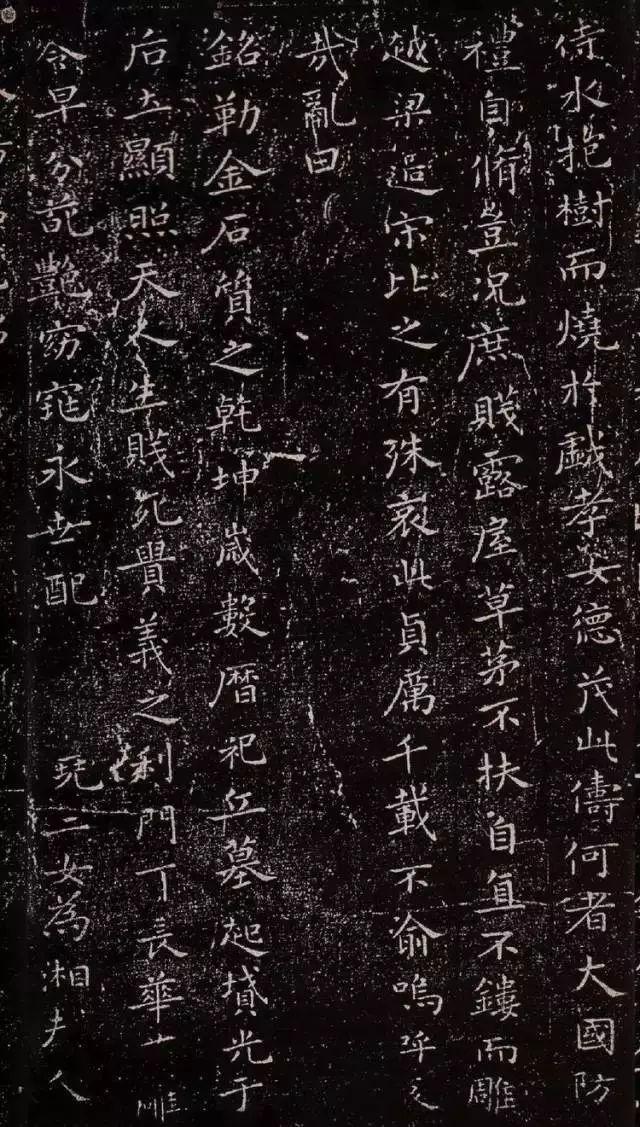 侍水抱樹而燒於戲孝女德茂此儔何者大國防
禮自脩豈況庶賤露屋草茅不扶自直不鏤而雕
越梁過宋比之有殊哀此貞厲千載不渝嗚呼
哉亂曰
銘勒金石質之乾坤歲數曆祀丘墓起墳光于
后土顯照天人生賤死貴義之利門長華雕
令早分葩艷窈窕永世配堯二女為湘夫人